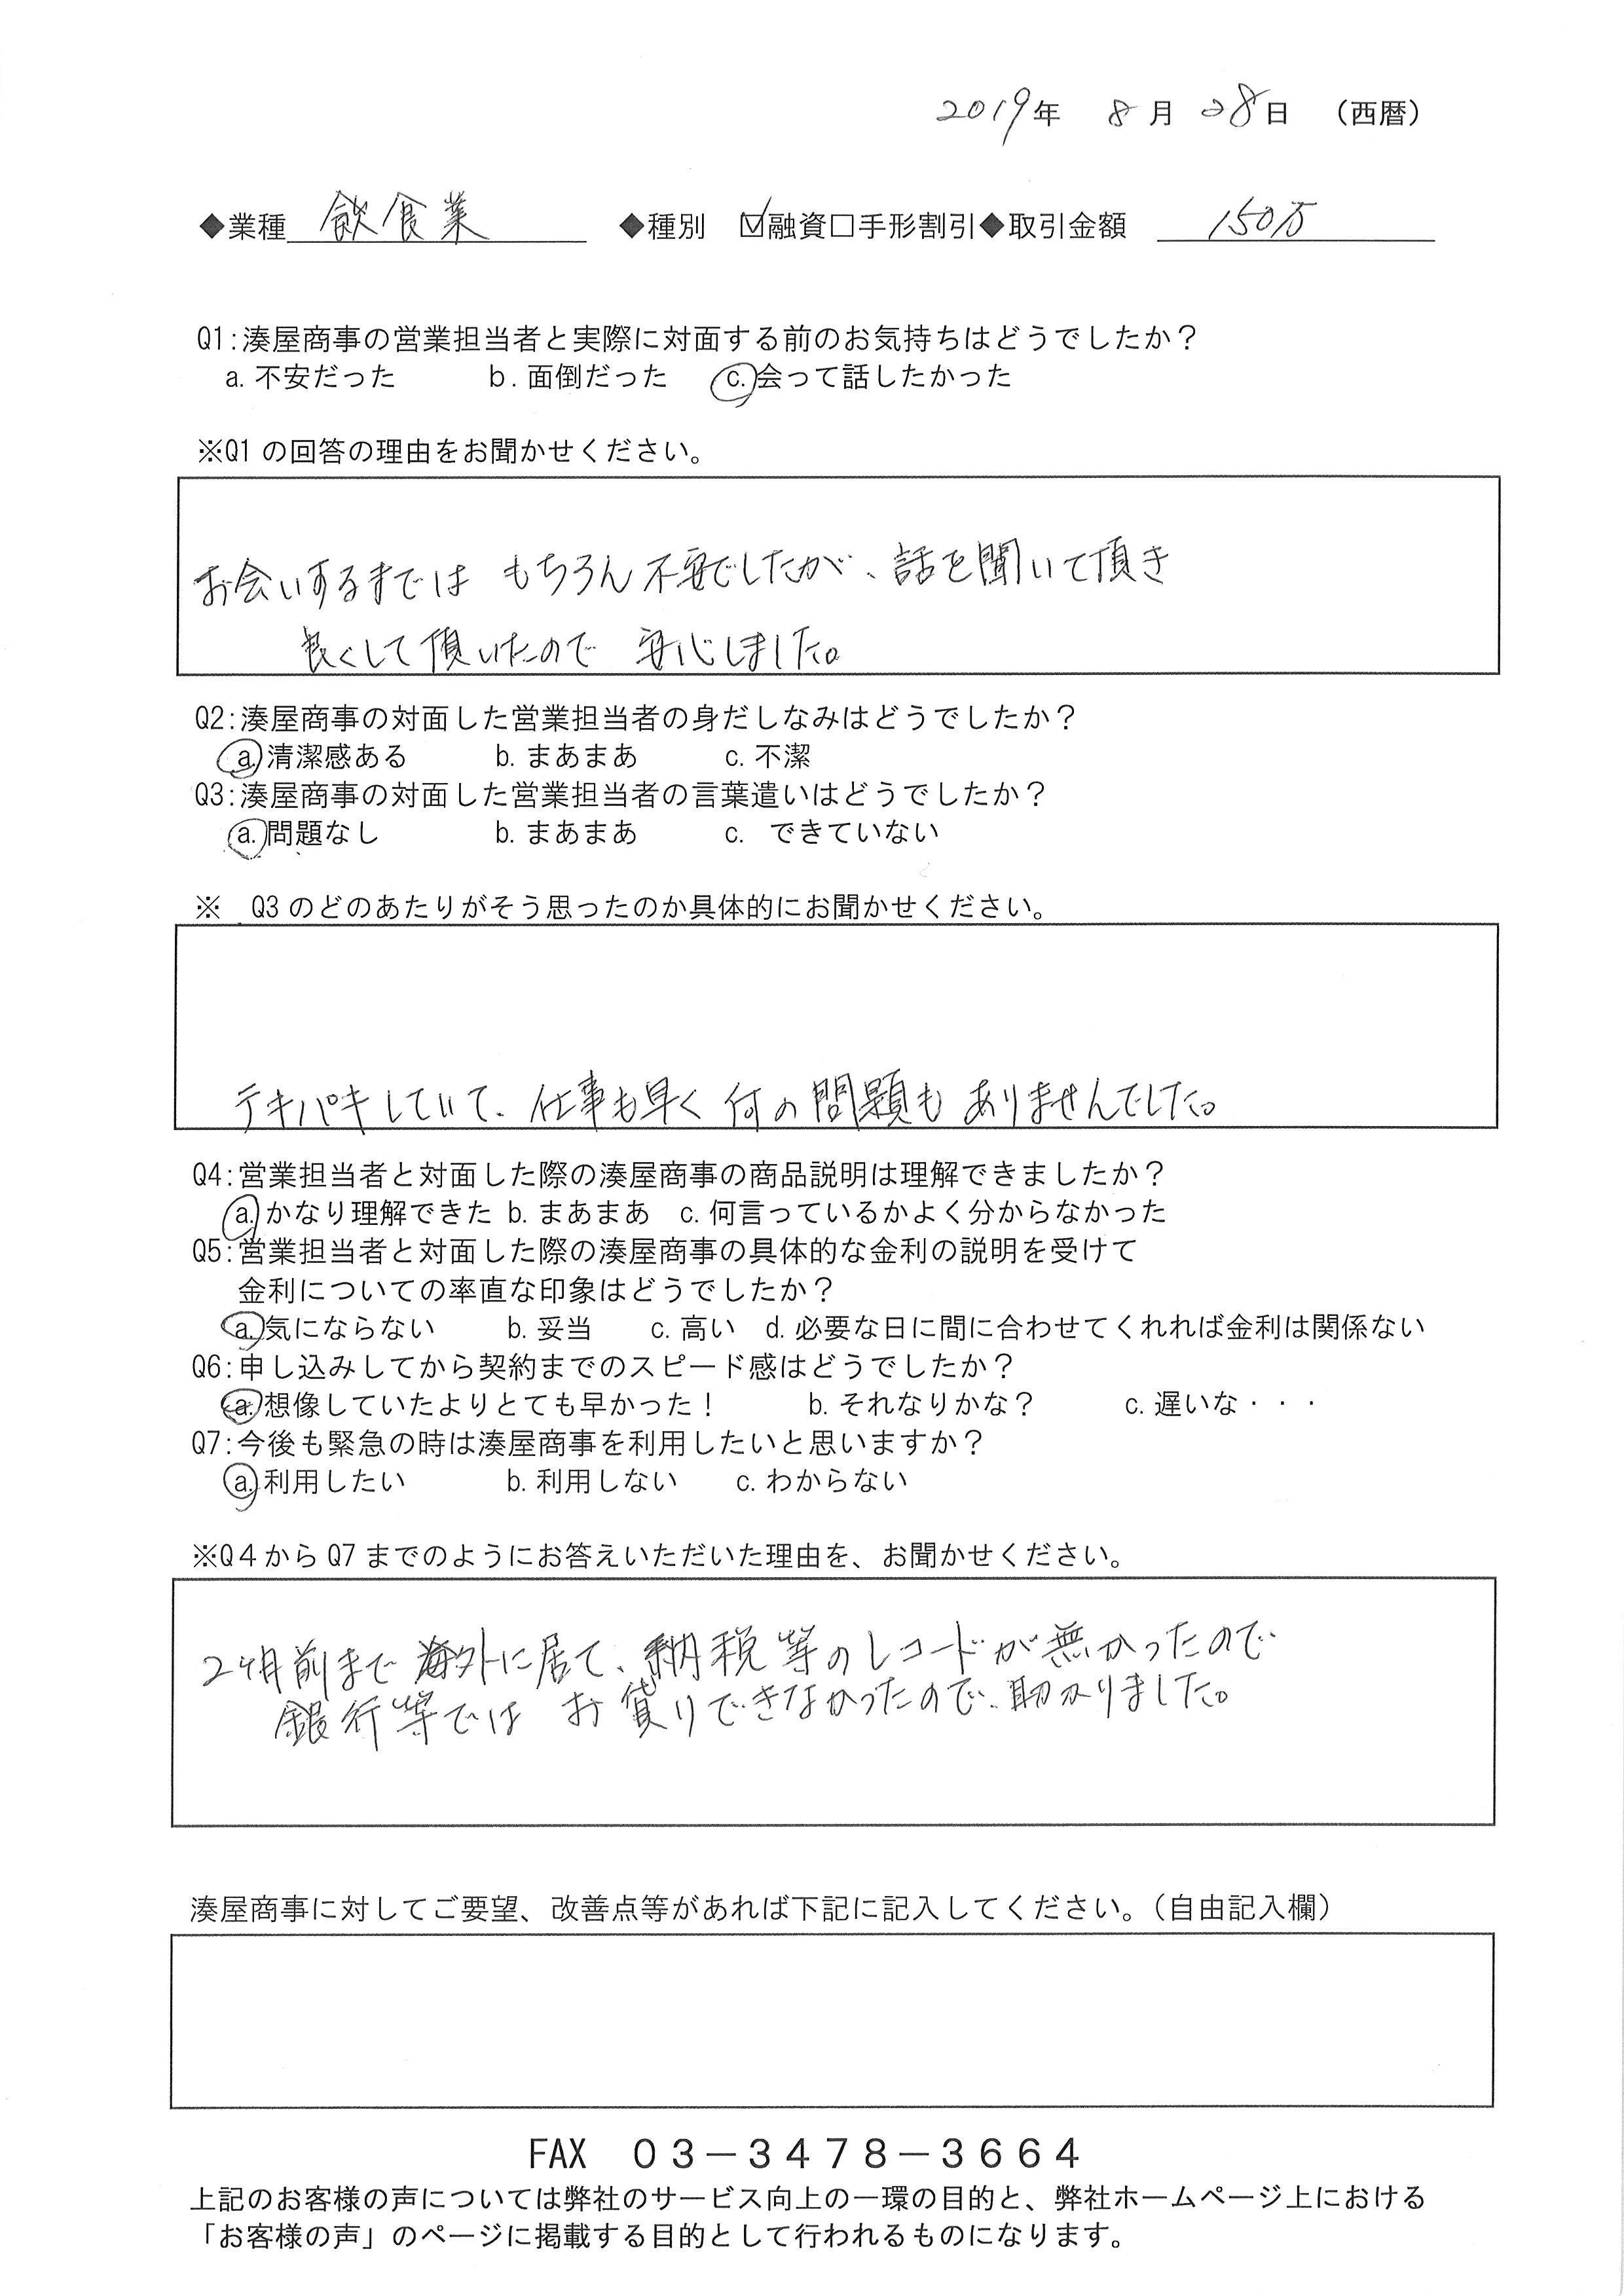 2019年 8月 28日 （西暦）
◆業種 飲食業 ◆種別 ☑融資□手形割引◆取引金額 150万
Q1:湊屋商事の営業担当者と実際に対面する前のお気持ちはどうでしたか？
a.不安だった b.面倒だった c.会って話したかった
※Q1の回答の理由をお聞かせください。
お会いするまでは もちろん不安でしたが、話を聞いて頂き
良くして頂いたので 安心しました。
Q2:湊屋商事の対面した営業担当者の身だしなみはどうでしたか？
a.清潔感ある b.まあまあ c.不潔
Q3:湊屋商事の対面した営業担当者の言葉遣いはどうでしたか？
a.問題なし b.まあまあ c. できていない
※ Q3のどのあたりがそう思ったのか具体的にお聞かせください。
テキパキしていて、仕事も早く 何の問題も ありませんでした。
Q4:営業担当者と対面した際の湊屋商事の商品説明は理解できましたか？
a.かなり理解できた b.まあまあ c.何言っているかよく分からなかった
Q5:営業担当者と対面した際の湊屋商事の具体的な金利の説明を受けて
金利についての率直な印象はどうでしたか？
a.気にならない b.妥当 c.高い d.必要な日に間に合わせてくれれば金利は関係ない
Q6:申し込みしてから契約までのスピード感はどうでしたか？
a.想像していたよりとても早かった！ b.それなりかな？ c.遅いな・・・
Q7:今後も緊急の時は湊屋商事を利用したいと思いますか？
a.利用したい b.利用しない c.わからない
※Q４からQ7までのようにお答えいただいた理由を、お聞かせください。
2ヶ月前まで 海外に居て、納税等のレコードが無かったので
銀行等では お貸りできなかったので、助かりました。
湊屋商事に対してご要望、改善点等があれば下記に記入してください。（自由記入欄）
FAX ０３－３４７８－３６６４
上記のお客様の声については弊社のサービス向上の一環の目的と、弊社ホームページ上における
「お客様の声」のページに掲載する目的として行われるものになります。